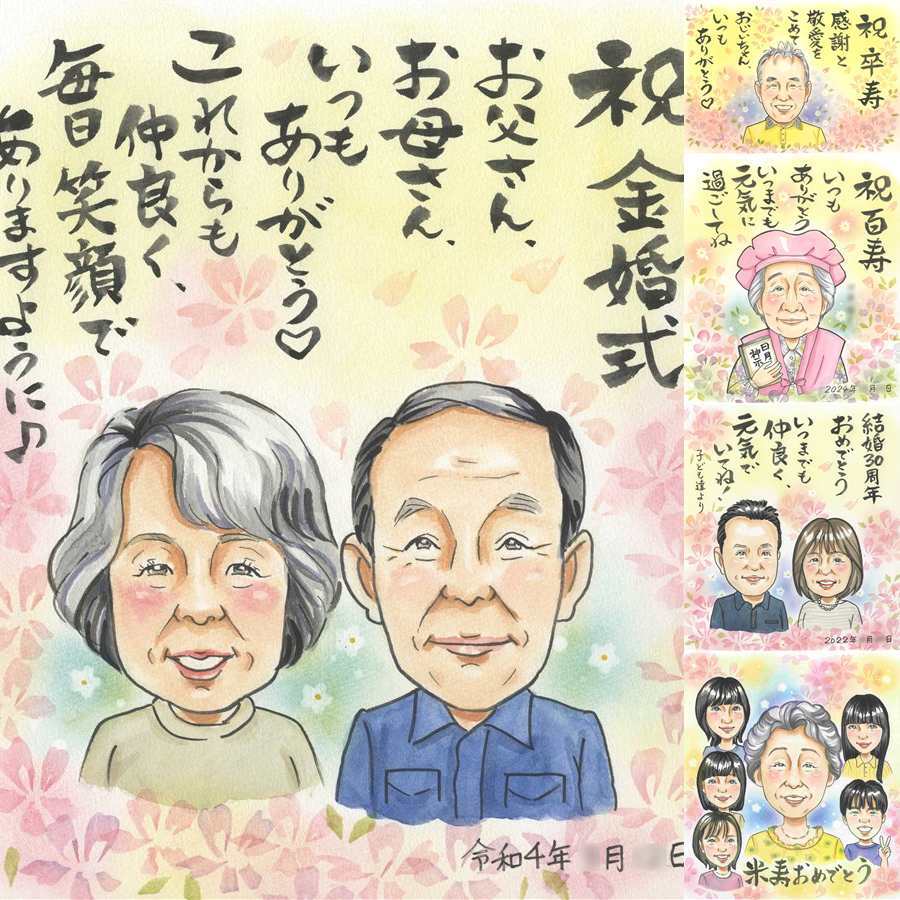 祝 金婚式
お父さん、
お母さん、
いつも
ありがとう♡
これからも
仲良く、
毎日 笑顔で
ありますように♪
令和4年 月 日
祝 卒寿
感謝と
敬愛を
こめて
おじいちゃん、
いつも
ありがとう♡
祝 百寿
いつも
ありがとう
いつまでも
元気に
過ごしてね
日月
神示
2024年 月 日
結婚30周年
おめでとう
いつまでも
仲良く、
元気で
いてね!
子ども達より
2022年 月 日
米寿おめでとう